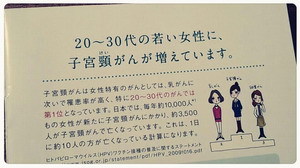 20～30代の若い女性に、
子宮頸がんが増えています。
子宮頸がんは女性特有のがんとしては、乳がんに
次いで罹患率が高く、特に20～30代のがんでは
第1位となっています。日本では、毎年約10,000人
もの女性が新たに子宮がんにかかり、約3,500
人が子宮頸がんで亡くなっています。これは、1日
に約10人の方が亡くなっている計算になります。
ヒトパピローマウイルス(HPV)ワクチン接種の普及に関するステートメント